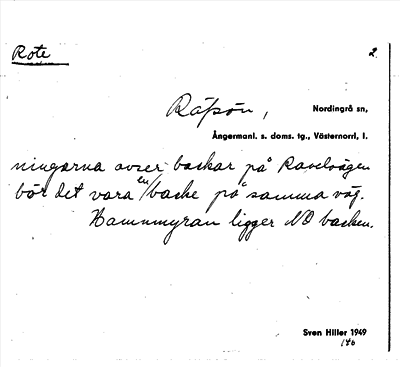 Rote
2.
Räpön, Nordingrå sn,
Ångermanl. s. doms. tg., Västernorrl. l.
ningarna avser backar på landsvägen
bör det vara en backe på samma väg.
Hamnmyran ligger NO backen.
Sven Hiller 1949